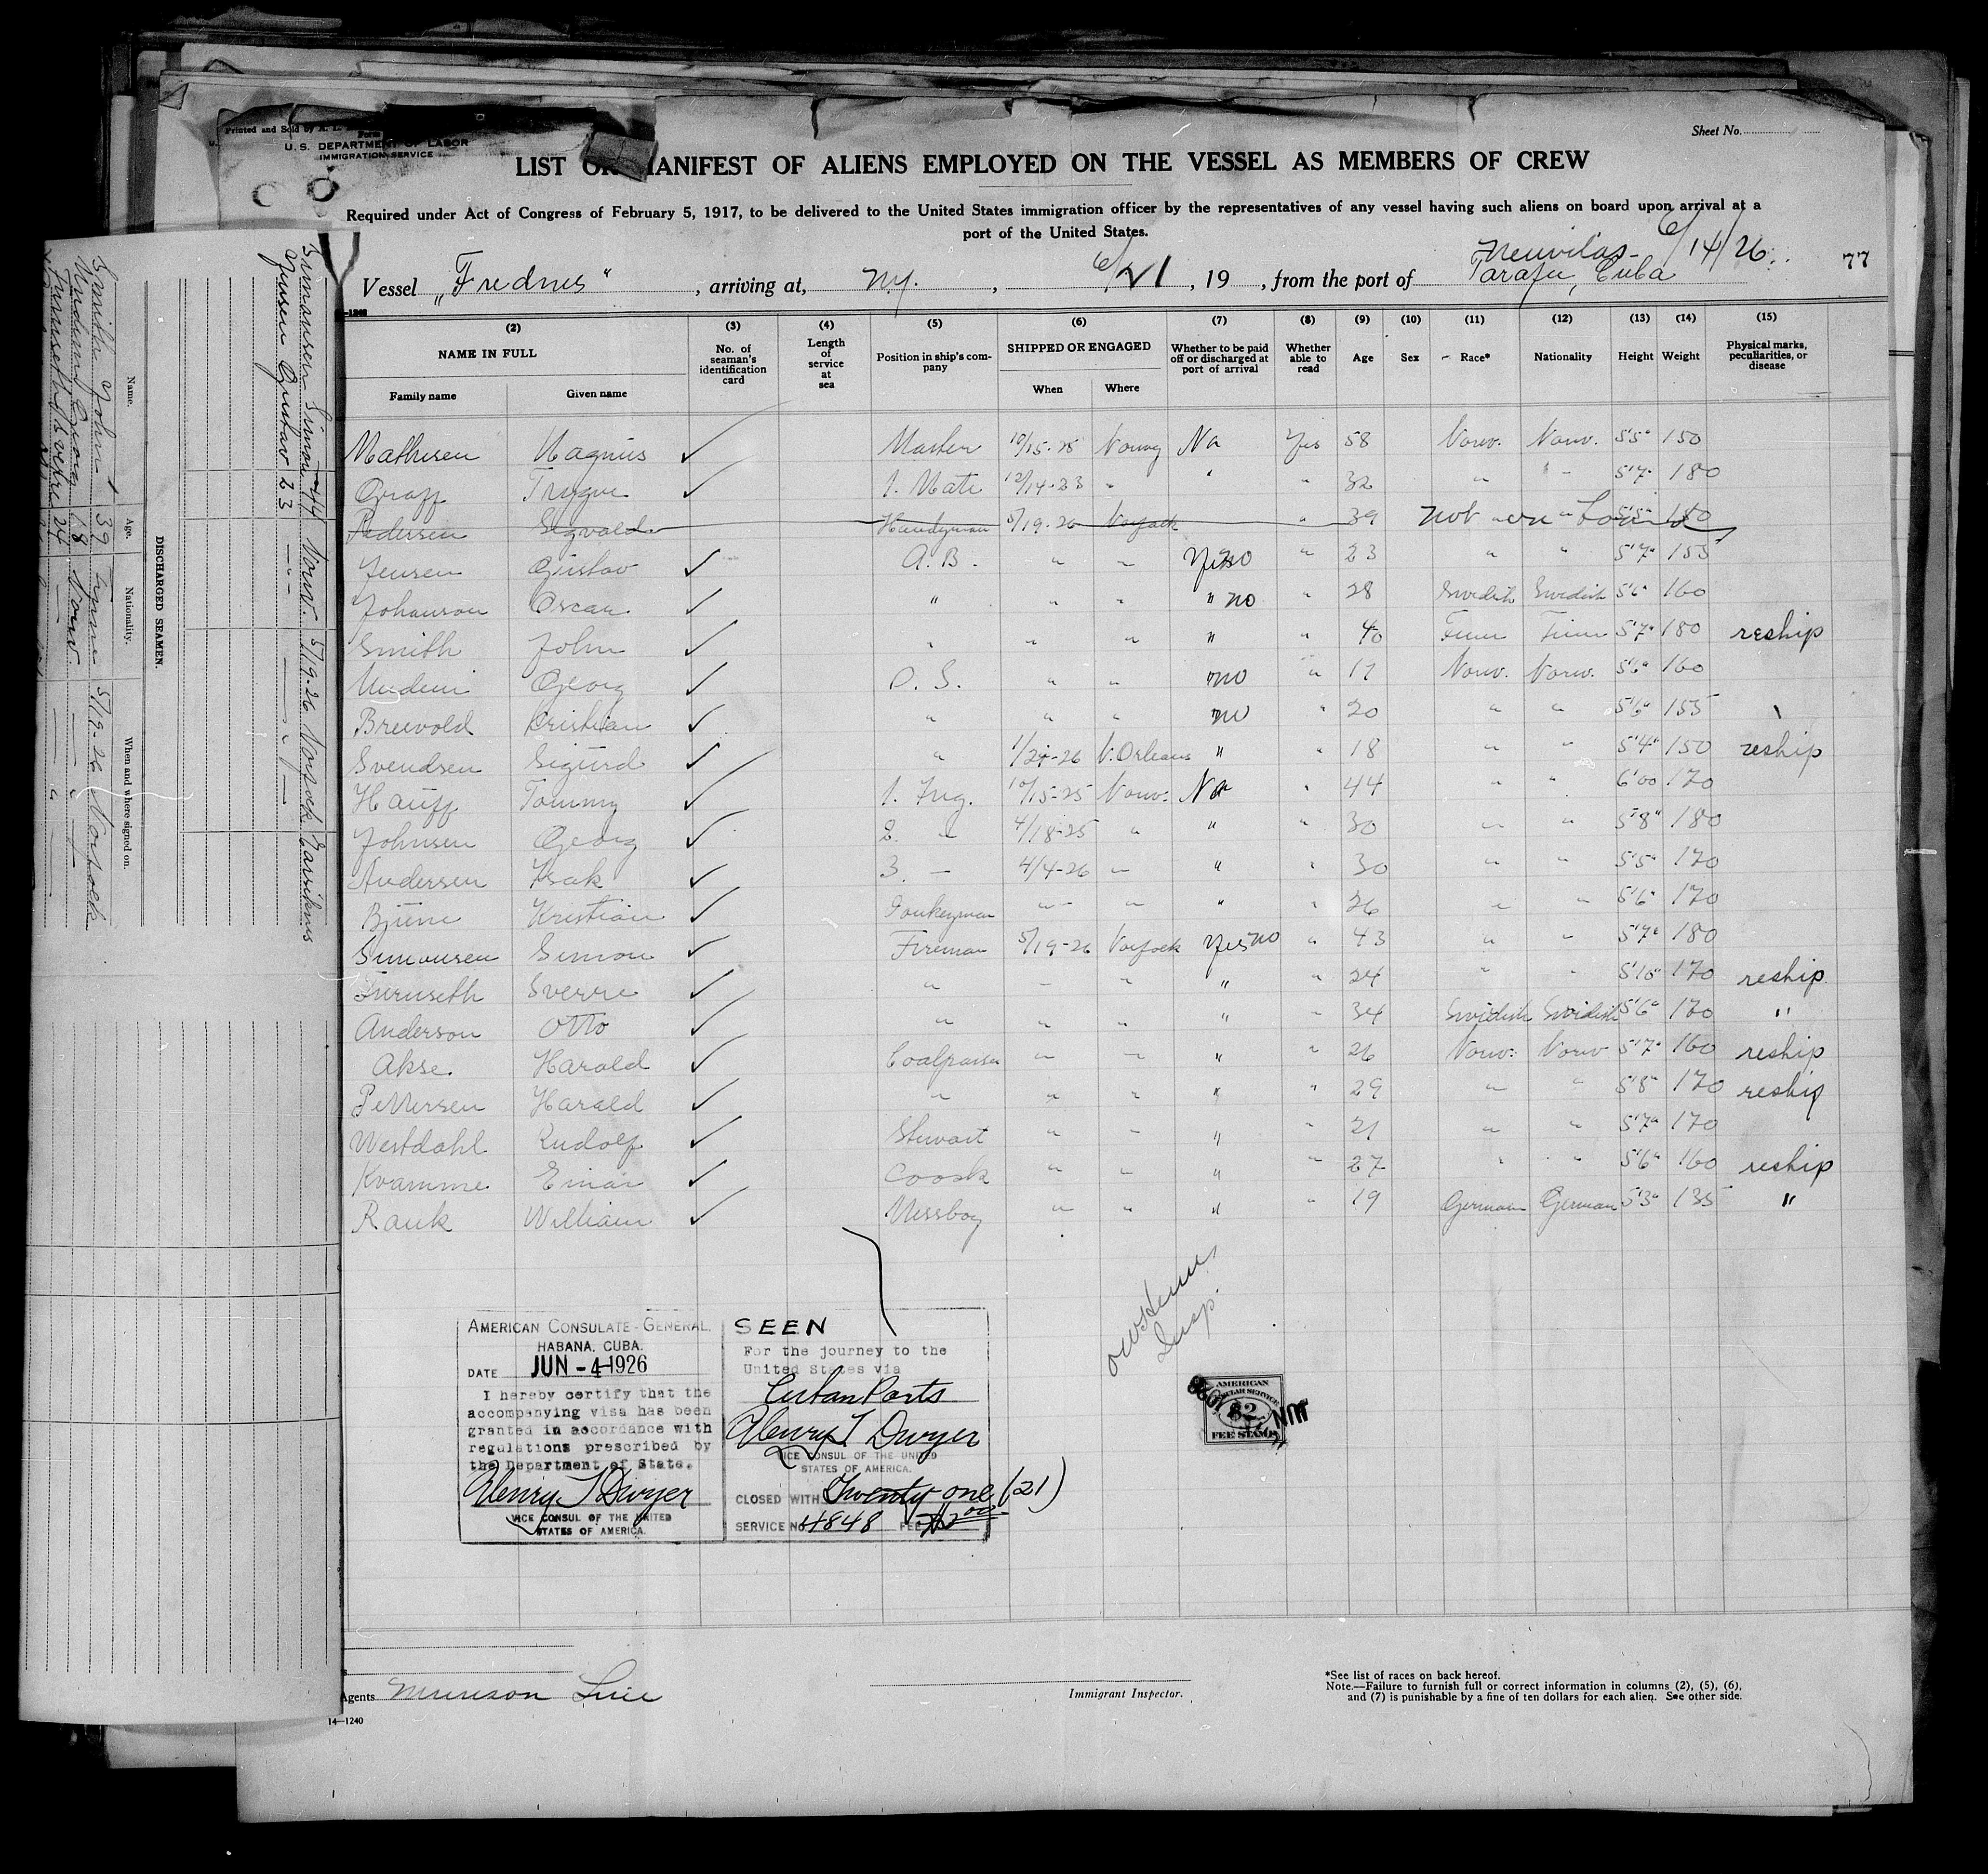 Sheet No.
Printed and Sold by A. L.
U. S. DEPARTMENT OF LABOR
IMMIGRATION SERVICE
LIST OR MANIFEST OF ALIENS EMPLOYED ON THE VESSEL AS MEMBERS OF CREW
Required under Act of Congress of February 5, 1917, to be delivered to the United States immigration officer by the representatives of any vessel having such aliens on board upon arrival at a
port of the United States.
Neuvitas 6/14/26
Vessel „Frednes“, arriving at, N.Y., 6/21, 19 , from the port of Tarafa, Cuba 77
(2) (3) (4) (5) (6) (7) (8) (9) (10) (11) (12) (13) (14) (15)
NAME IN FULL No. of seaman's identification card Length of service at sea Position in ship's company SHIPPED OR ENGAGED Whether to be paid off or discharged at port of arrival Whether able to read Age Sex Race* Nationality Height Weight Physical marks, peculiarities, or disease
Family name Given name When Where
Mathisen Magnus ✓ Master 10/15-25 Norway No Yes 58 Norw. Norw. 5'5" 150
Graff Trygve ✓ 1. Mate 12/14-23 " " " 32 " " 5'7" 180
Pedersen Sigvald Handyman 5/19-26 Norfock " 39 not on board 5'5" 180
Jensen Gustav ✓ A.B. " " Yes no " 23 " " 5'7" 155
Johanson Oscar ✓ " " " " no " 28 Swedish Swedish 5'6" 160
Smith John ✓ " " " " " 40 Finn Finn 5'7" 180 reship
Undeni Georg ✓ O. S. " " " no " 17 Norw. Norw. 5'6" 160
Breivold Cristian ✓ " " " " no " 20 " " 5'6" 155
Svendsen Sigurd ✓ " 1/24-26 N. Orleans " " 18 " " 5'4" 150 reship
Hauff Tommy ✓ 1. Ing. 10/15-25 Norw. No " 44 " " 6'00 170
Johnsen Georg ✓ 2. " 4/18-25 " " " 30 " " 5'8" 180
Andersen Isak ✓ 3. — 4/4-26 — " " 30 " " 5'5" 170
Bjune Kristian ✓ Donkeyman " " " " 26 " " 5'6" 170
Simonsen Simon ✓ Fireman 5/19-26 Norfock Yes no " 43 " " 5'7" 180
Furuseth Sverre ✓ " — " " " 24 " " 5'10" 170 reship
Anderson Otto ✓ " " " " " 34 Swedish Swedish 5'6" 170 "
Akse Harald ✓ Coalpasser " " " " 26 Norw. Norw 5'7" 160 reship
Pettersen Harald ✓ " " " " " 29 " " 5'8" 170 reship
Westdahl Rudolf ✓ Stewart " " " " 21 " " 5'7" 170
Kvamme Einar ✓ Coock " " " " 27 " " 5'6" 160 reship
Rauk William ✓ Messboy " " " " 19 German German 5'3" 135 "
AMERICAN CONSULATE-GENERAL,
HABANA, CUBA.
DATE JUN -4 1926
I hereby certify that the
accompanying visa has been
granted in accordance with
regulations prescribed by
the Department of State.
Henry T Dwyer
VICE CONSUL OF THE UNITED
STATES OF AMERICA.
SEEN
For the journey to the
United States via
Cuban Ports
Henry T Dwyer
VICE CONSUL OF THE UNITED
STATES OF AMERICA.
CLOSED WITH Twenty one (21)
SERVICE No. 4848 FEE $2.00
Insp.
AMERICAN
CONSULAR SERVICE
$2
FEE STAMP
Agents Munson Line
Immigrant Inspector.
*See list of races on back hereof.
Note.—Failure to furnish full or correct information in columns (2), (5), (6),
and (7) is punishable by a fine of ten dollars for each alien. See other side.
14—1240
DISCHARGED SEAMEN.
Name. Age. Nationality. When and where signed on.
Smith John 39 Finne 5/19-26 Norfock
Undeni Georg 18 Norw. " "
Furuseth Sverre 24 " "
Simonsen Simon 44 Norw. 5/19-26 Norfock
Jensen Gustav 23 " "